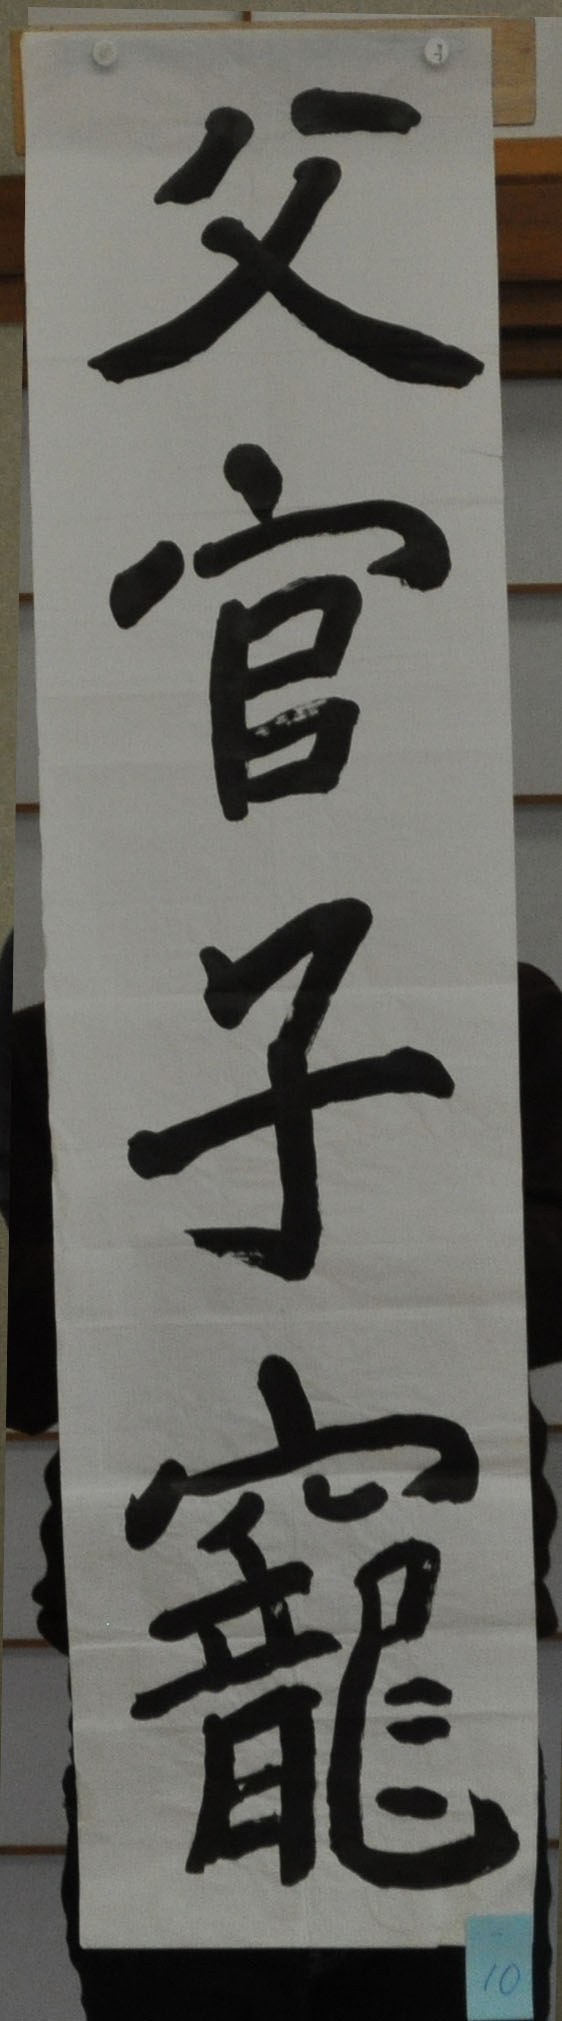 父官子寵
10